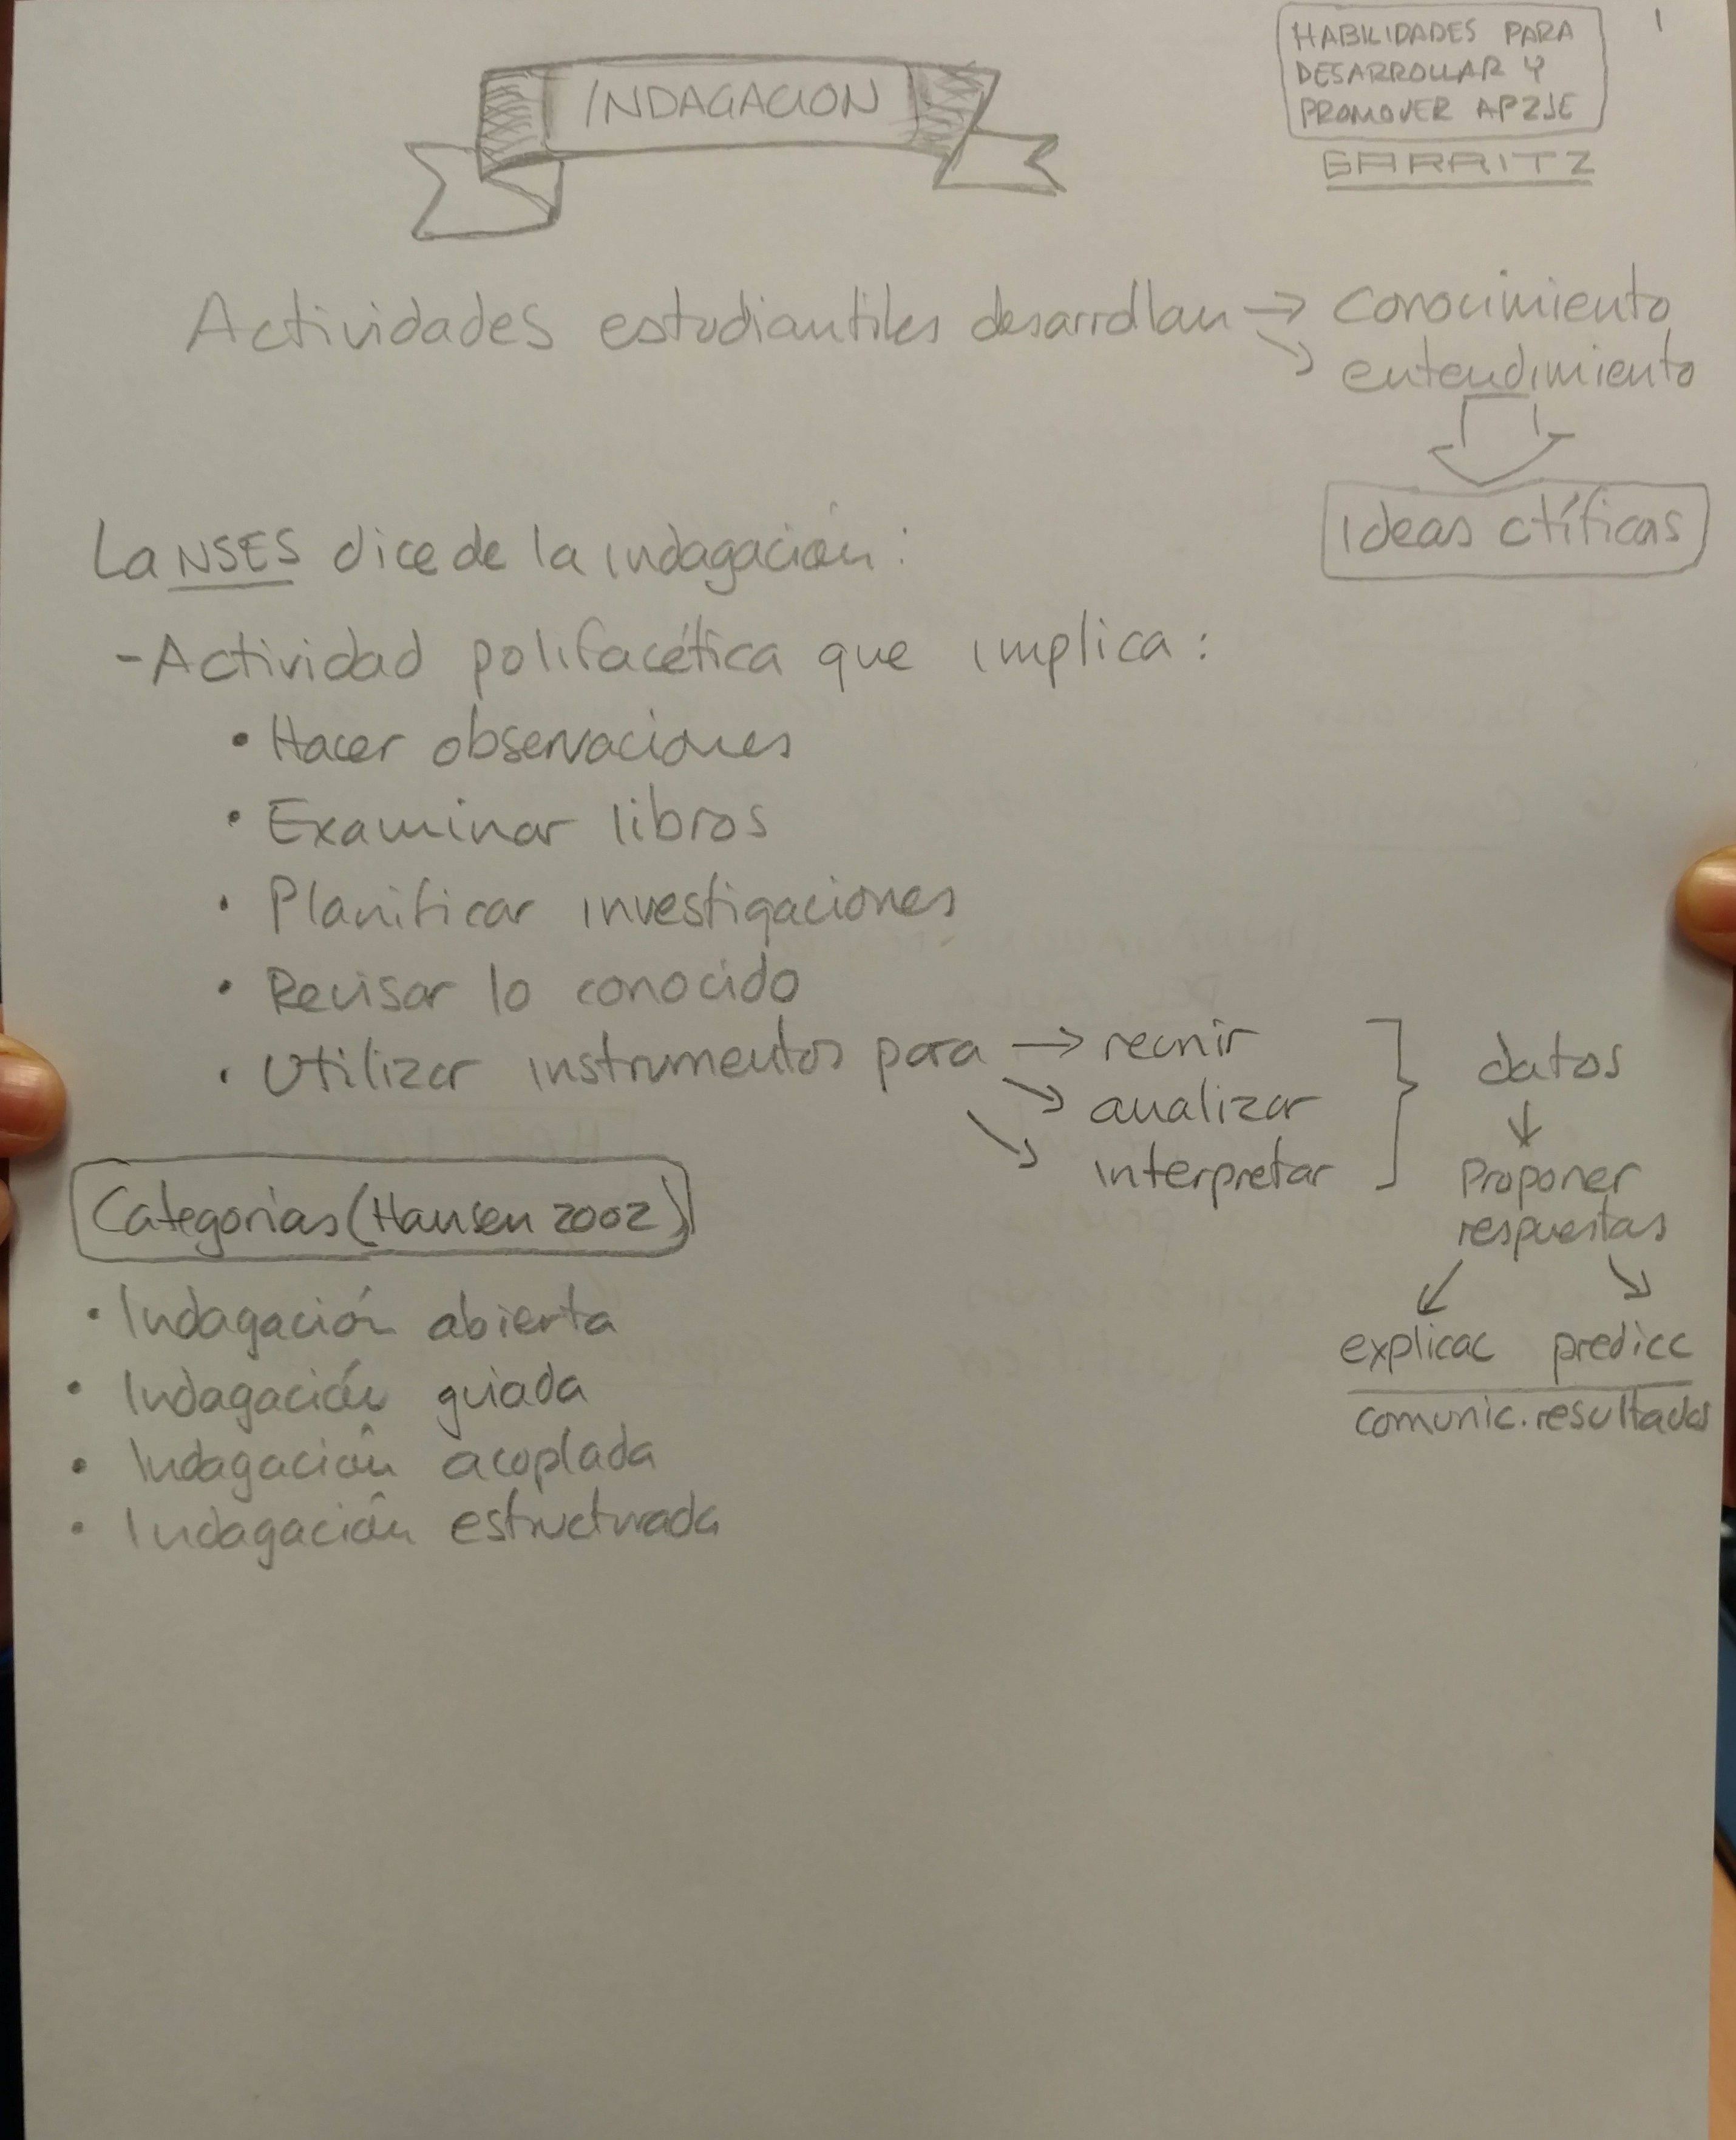 1
HABILIDADES PARA
DESARROLLAR Y
PROMOVER APZJE
GARRITZ
INDAGACION
Actividades estudiantiles desarrollan → conocimiento
↘ entendimiento
Ideas ctíficas
La NSES dice de la indagación:
- Actividad polifacética que implica:
• Hacer observaciones
• Examinar libros
• Planificar investigaciones
• Revisar lo conocido
• Utilizar instrumentos para → reunir
↘ analizar
↘ interpretar
datos
↓
Proponer
respuestas
↙ ↘
explicac predicc
comunic. resultados
Categorías (Hansen 2002)
• Indagación abierta
• Indagación guiada
• Indagación acoplada
• Indagación estructurada